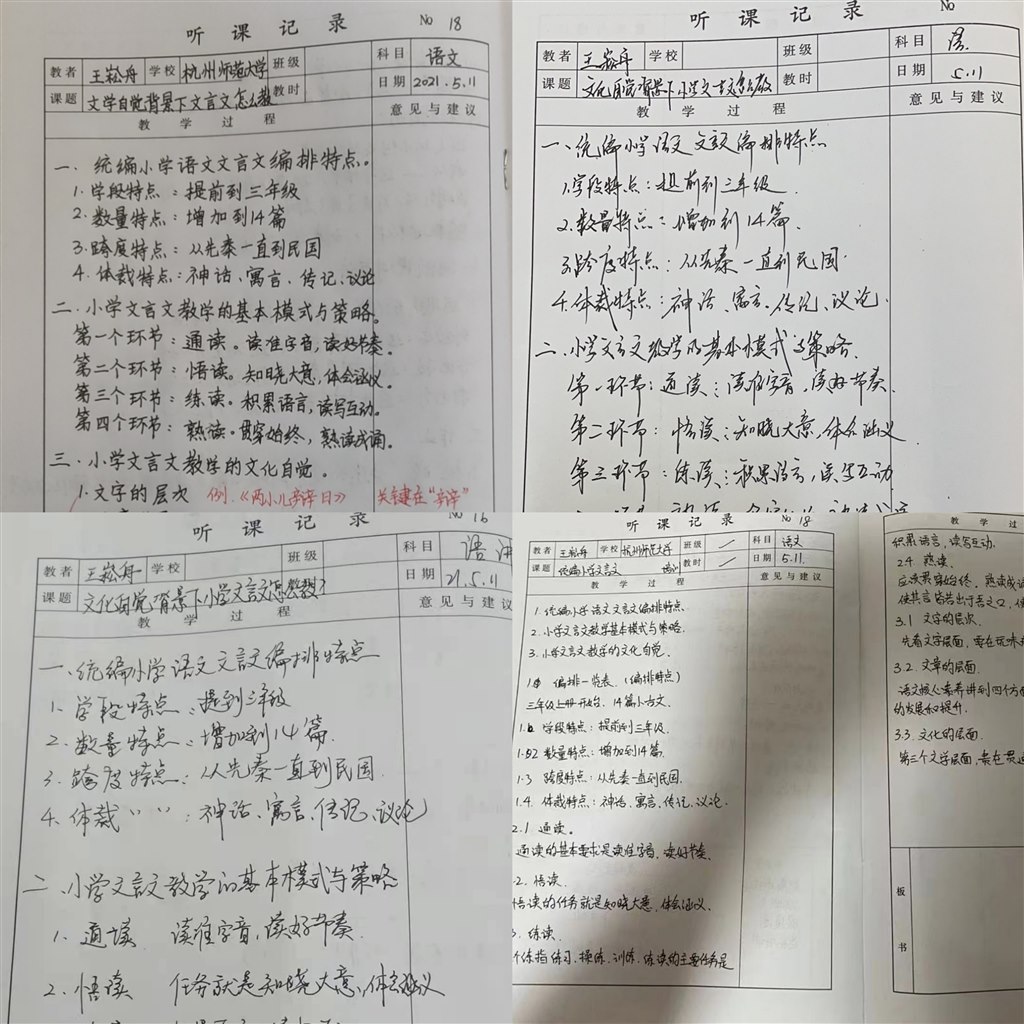 听课记录 No 18
教者 王崧舟 学校 杭州师范大学 班级 科目 语文
课题 文学自觉背景下文言文怎么教 教时 日期 2021.5.11
教学过程 意见与建议
一. 统编小学语文文言文编排特点。
1. 学段特点：提前到三年级
2. 数量特点：增加到14篇
3. 跨度特点：从先秦一直到民国
4. 体裁特点：神话、寓言、传记、议论
二. 小学文言文教学的基本模式与策略。
第一个环节：通读。读准字音，读好节奏。
第二个环节：悟读。知晓大意，体会涵义。
第三个环节：练读。积累语言，读写互动。
第四个环节：熟读。贯穿始终，熟读成诵。
三. 小学文言文教学的文化自觉。
1. 文字的层次 例.《两小儿辩日》 关键在“辩”
听课记录 No
教者 王崧舟 学校 班级 科目 语
课题 文化自觉背景下小学文言文怎么教 教时 日期 5.11
教学过程 意见与建议
一、统编小学语文文言文编排特点
1. 学段特点：提前到三年级.
2. 数量特点：增加到14篇.
3. 跨度特点：从先秦一直到民国.
4. 体裁特点：神话、寓言、传记、议论.
二. 小学文言文教学的基本模式与策略.
第一环节：通读：读准字音，读好节奏.
第二环节：悟读：知晓大意，体会涵义
第三环节：练读：积累语言，读写互动
听课记录 No 16
教者 王崧舟 学校 班级 科目 语
课题 文化自觉背景下小学文言文怎么教? 教时 日期 21.5.11
教学过程 意见与建议
一、统编小学语文文言文编排特点
1. 学段特点：提到三年级
2. 数量特点：增加到14篇.
3. 跨度特点：从先秦一直到民国.
4. 体裁 〃 〃：神话、寓言、传记、议论
二 小学文言文教学的基本模式与策略
1. 通读 读准字音，读好节奏.
2. 悟读 任务就是知晓大意，体会涵义
听课记录 No 18
教者 王崧舟 学校 杭州师范大学 班级 / 科目 语文
课题 统编小学文言文 教时 / 日期 5.11.
教学过程 意见与建议
1. 统编小学语文文言文编排特点.
2. 小学文言文教学基本模式与策略.
3. 小学文言文教学的文化自觉.
编排一览表.（编排特点）
三年级上册开始. 14篇小古文.
学段特点：提前到三年级.
数量特点：增加到14篇.
1.3 跨度特点：从先秦一直到民国.
1.4. 体裁特点：神话、寓言、传记、议论.
2.1 通读。
通读的基本要求是读准字音、读好节奏.
2. 悟读.
悟读的任务就是知晓大意，体会涵义.
3. 练读.
练指练习、操练、训练，练读的主要任务是
教学过
积累语言，读写互动.
2.4 熟读.
应该贯穿始终，熟读成诵
使其言皆若出于吾之口，使
3.1 文字的层次.
先看文字层面，要在玩味
3.2. 文章的层面.
语文核心素养讲到四个方面
的发展和提升.
3.3. 文化的层面.
第三个文学层面，贵在贯通
板书